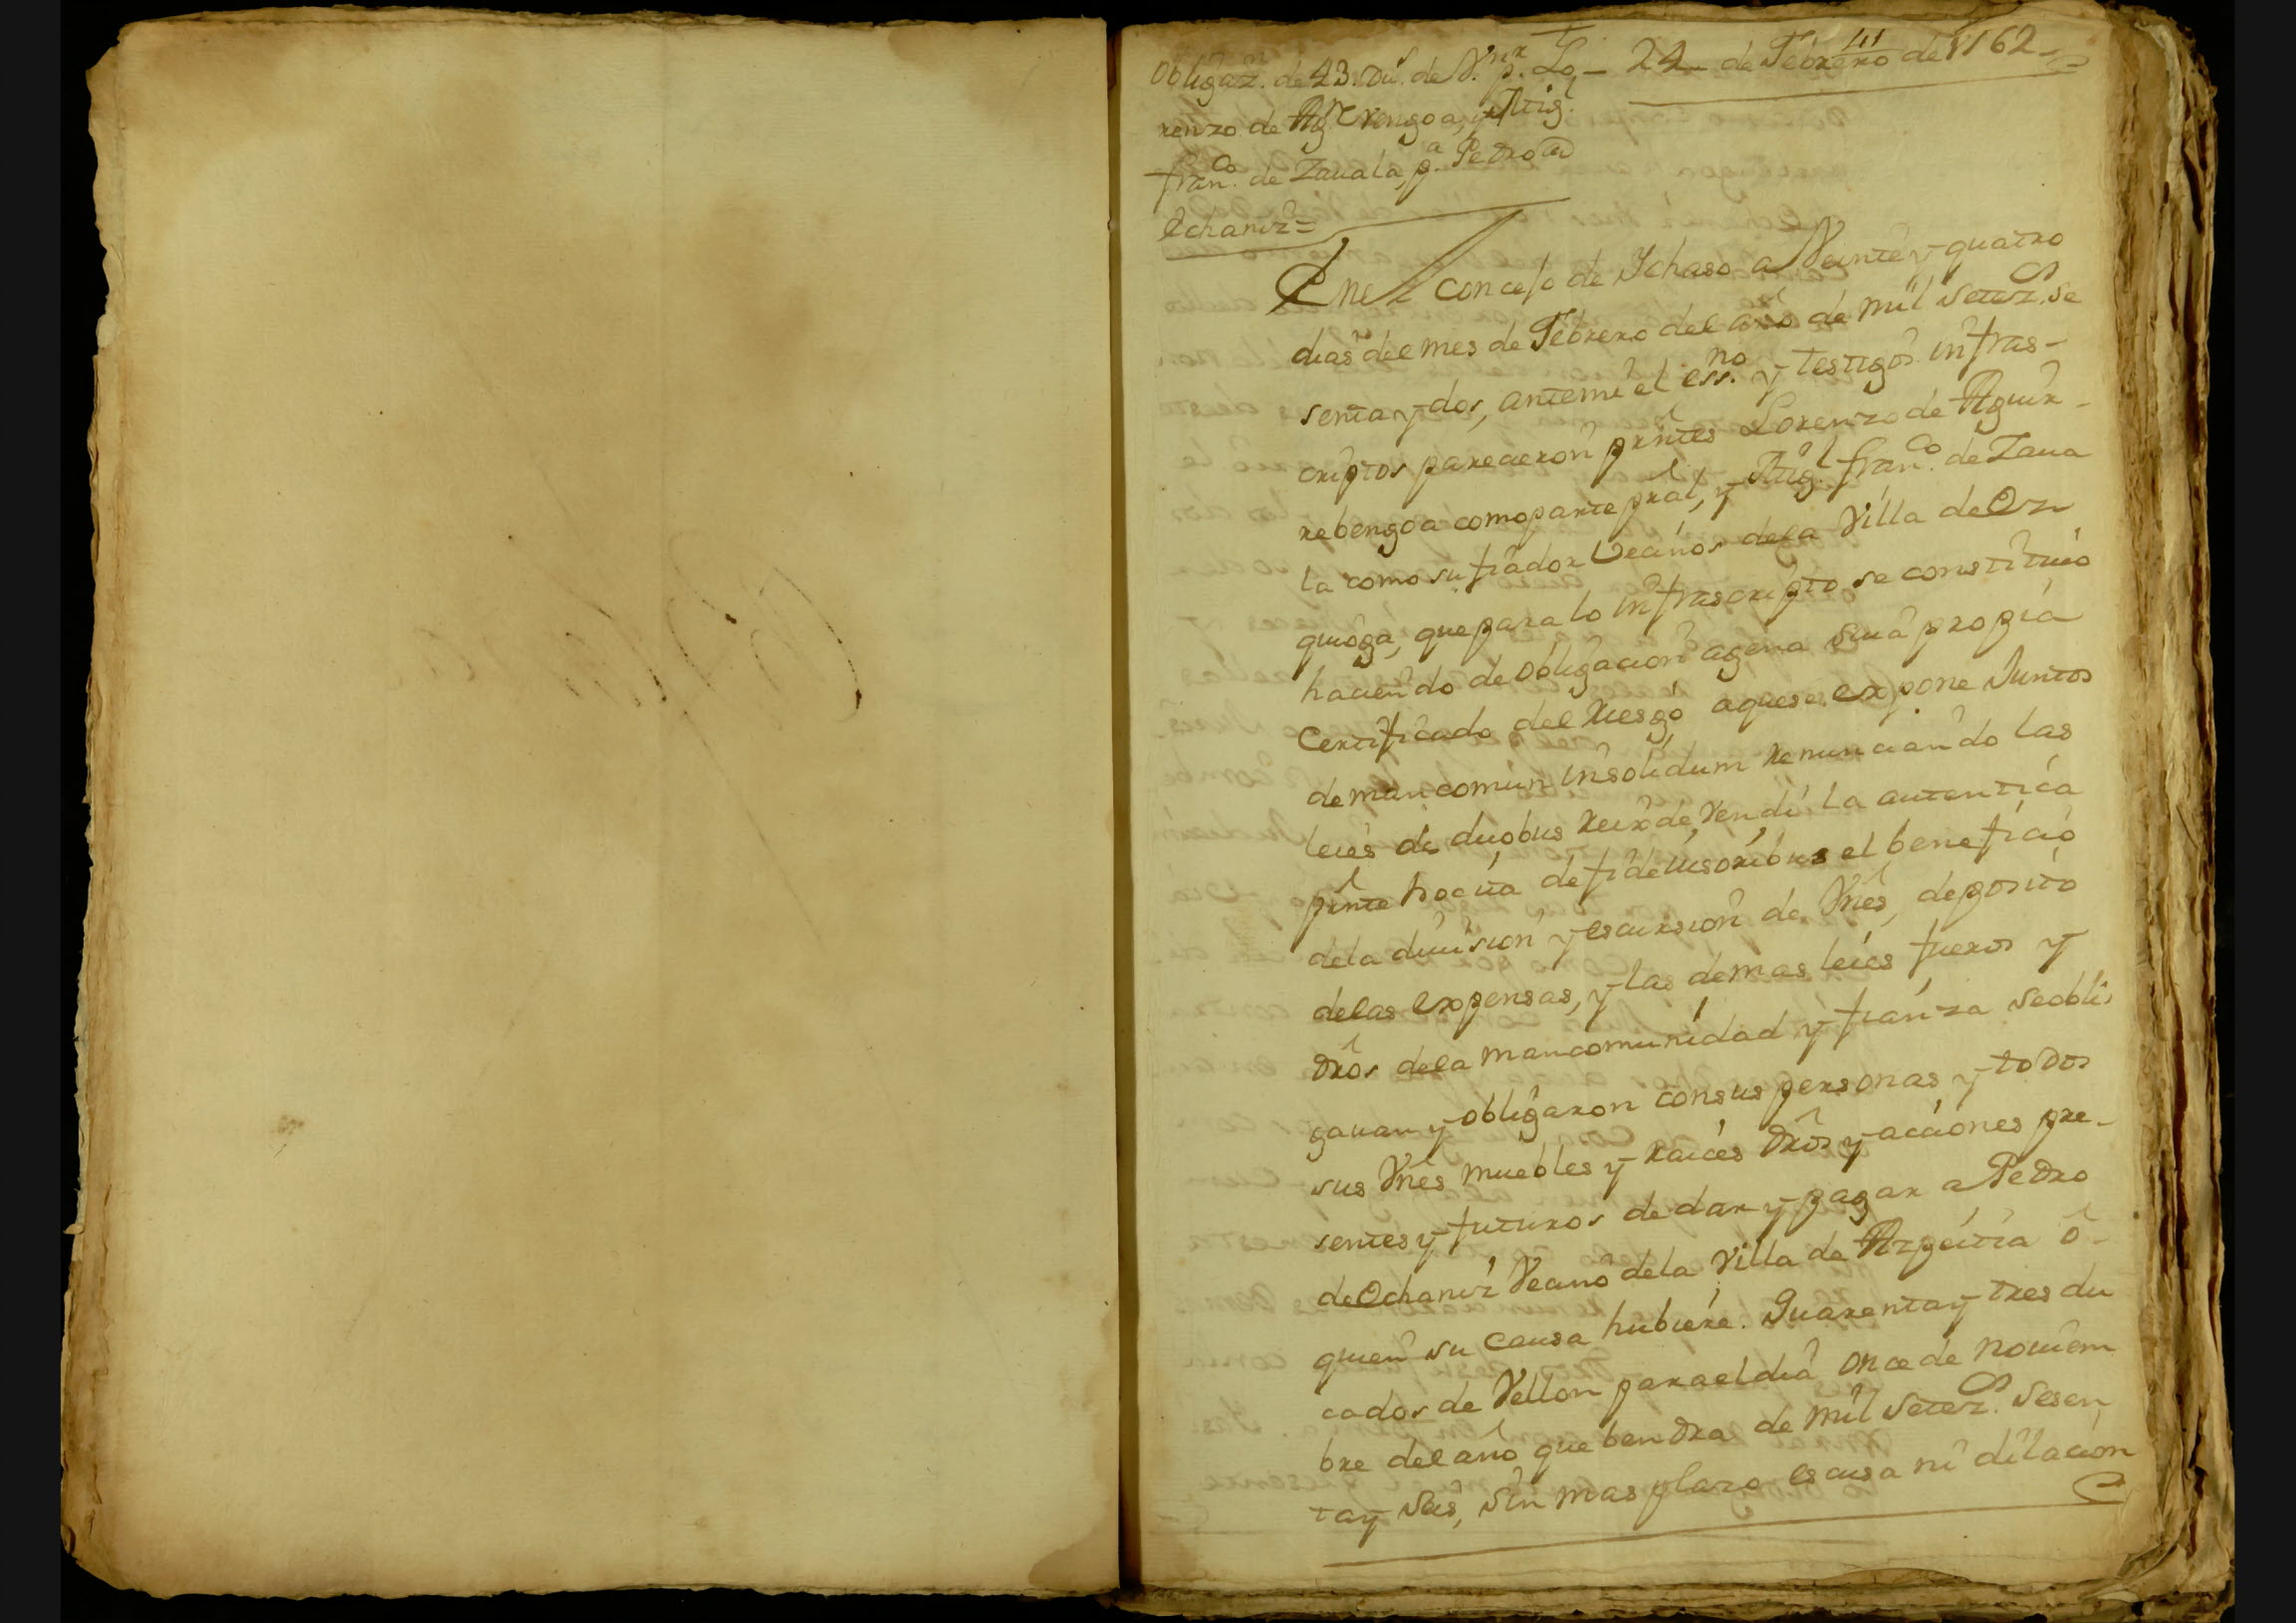 Obligaz.ⁿ de 43. Du.ˢ de V.ⁿ p.ʳ Lo-
renzo de Ag.ʳᵉ revengoa, y Mig.ˡ
Fran.ᶜᵒ de Zauala, p.ᵃ Pedro de
Echaniz =
24 de Febrero de 1762
En el concejo de Ychaso a Veinte y quatro
dias del mes de Febrero del año de mil Setez.ˢ se
senta y dos, ante mi el ess.ⁿᵒ y testigos infras-
criptos parecieron prñtes Lorenzo de Aguir-
rebengoa como parte pral, y Mig.ˡ Fran.ᶜᵒ de Zaua
la como su fiador Vecinos de la Villa de Oz
quioga, que para lo infrascripto se constituió
haciendo de obligacion agena suia propia
Certificado del Riesgo, a que se expone Juntos
de mancomun insolidum Renunciando las
leies de duobus Reix de Vendi la autentica
prñte hocita de fidelusoribus el beneficio
de la diuision y escursion de Vñes, deposito
de las Expensas, y las demas leies fueros y
drõs de la mancomunidad y fianza se obli
gauan y obligaron con sus personas y todos
sus Vñes muebles y Raices drõs y acciones pre-
sentes y futuros de dar y pagar a Pedro
de Echaniz Vecino de la Villa de Azpeitia ô
quien su Causa hubiere. Quarenta y tres du
cados de Vellon para el dia once de Nouiem
bre del año que bendra de mil Setez.ˢ Sesen
ta y Seis, sin mas plazo escusa ni dilacion